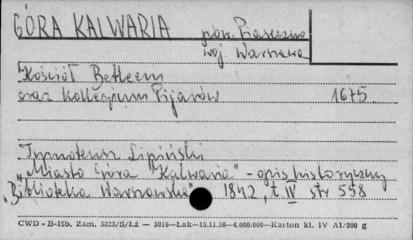 GÓRA KALWARIA pow. Piaseczno
woj. Warszawa
Kościół Betleem
oraz Kollegium Pijarów 1675.
Tymoteusz Lipiński
"Miasto Góra "Kalwaria" - opis historyczny
"Biblioteka Warszawska" 1842, t. IV str 558
CWD - B-15b, Zam. 5223/S/Łż — 3016—Łak—15.11.56—4.000.000—Karton kl. IV A1/200 g